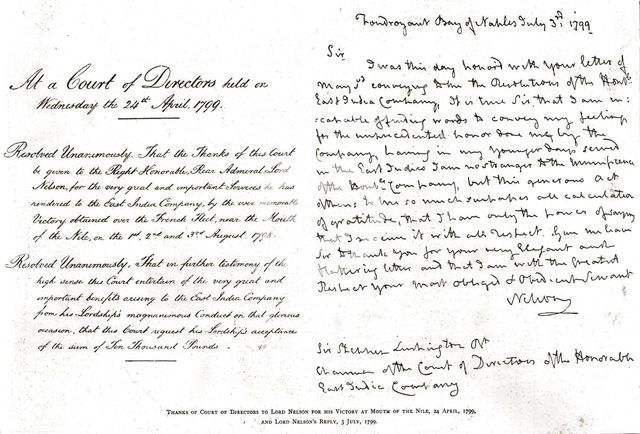 At a Court of Directors held on
Wednesday the 24th April, 1799.
Resolved Unanimously, That the Thanks of this Court
be given to the Right Honorable, Rear Admiral Lord
Nelson, for the very great and important Services he has
rendered to the East India Company, by the ever memorable
Victory obtained over the French Fleet, near the Mouth
of the Nile, on the 1st, 2nd and 3rd August, 1798.
Resolved Unanimously, That in further testimony of the
high sense this Court entertain of the very great and
important benefits arising to the East India Company
from his Lordship's magnanimous Conduct on that glorious
occasion, that this Court request his Lordship's acceptance
of the sum of Ten Thousand Pounds.
Foudroyant Bay of Naples July 3rd, 1799
Sir
I was this day honord with your letter of
May 3d conveying to me the Resolutions of the Honble
East India Company. It is true Sir, that I am in-
:capable of finding words to convey my feelings
for the unprecedented honor done me by the
Company, having in my younger days served
in the East Indies I am no stranger to the Munificence
of the Honble Company, but this generous act
of theirs to me so much surpasses all calculation
of gratitude, that I have only the power of saying
that I receive it with all respect. Give me leave
Sir to thank you for your very Elegant and
flattering letter and that I am with the greatest
Respect your most obliged & Obedient Servant
Nelson
Sir Stephen Lushington Bt
Chairman of the Court of Directors of the Honorable
East India Company
Thanks of Court of Directors to Lord Nelson for his Victory at Mouth of the Nile, 24 April, 1799,
and Lord Nelson's Reply, 3 July, 1799.